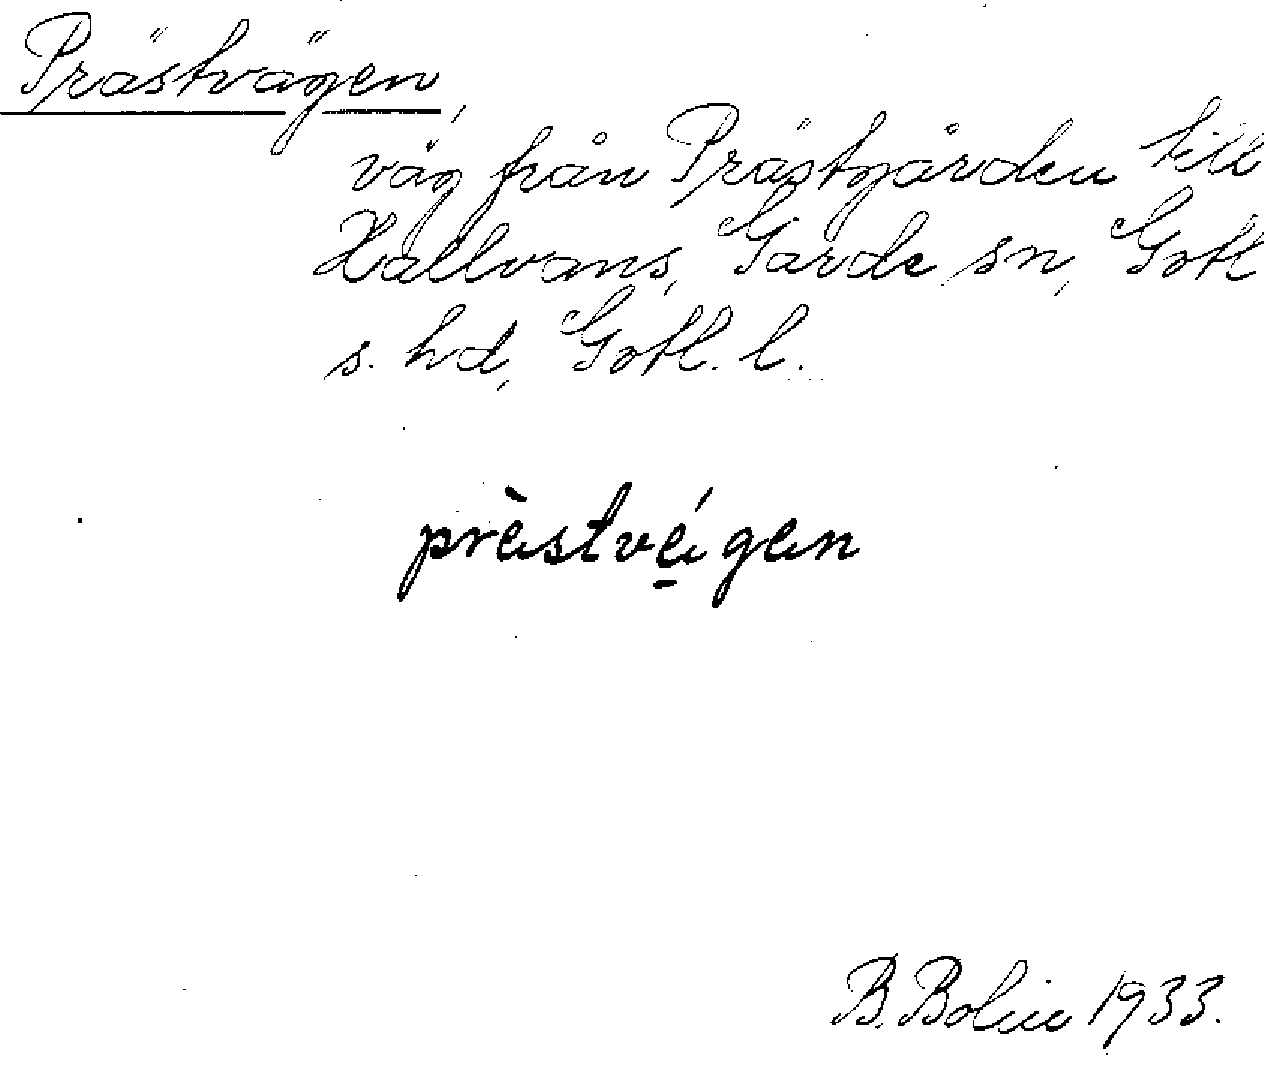 Prästvägen,
väg från Prästgården till
Hallvans, Garde sn, Gotl
s. hd, Gotl. l.
prèstvé̱gen
B. Bolin 1933.